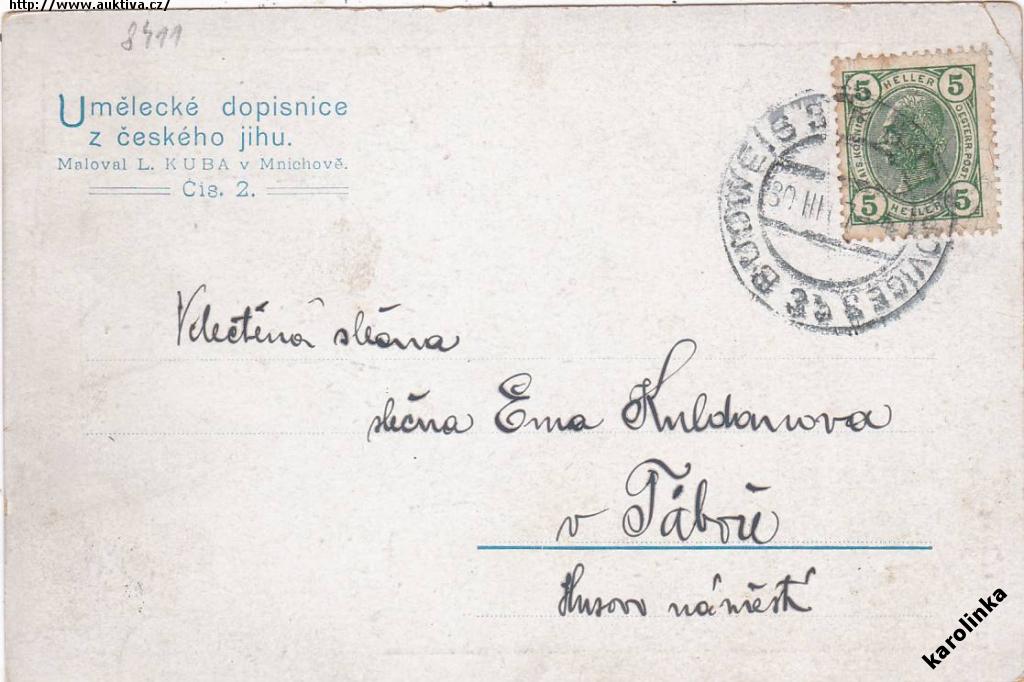 http://www.auktiva.cz/
8411
Umělecké dopisnice
z českého jihu.
Maloval L. KUBA v Mnichově.
Čís. 2.
5 HELLER 5
KAIS. KÖNIGL. OESTERR. POST
5 HELLER 5
BUDWEIS
30 III
Velectěná slečna
slečna Ema Kuldanova
v Táboře
Husovo náměstí
karolinka